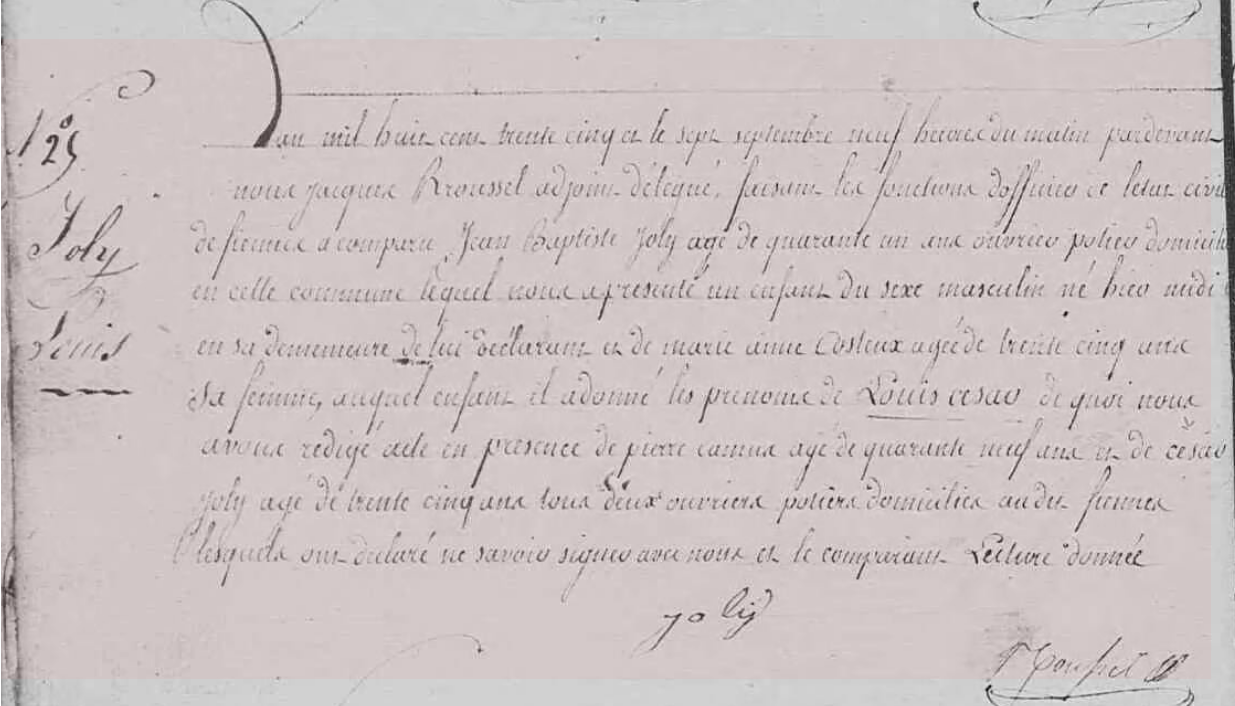 N° 25
Joly
Louis
L'an mil huit cent trente cinq et le sept septembre neuf heures du matin pardevant
nous jacques Rroussel adjoint délégué, faisant les fonctions d'officier de letat civil
de fiennes a comparu Jean Baptiste Joly agé de quarante un ans ouvrier potier domicilié
en cette commune lequel nous a presenté un enfant du sexe masculin né hier midi
en sa demeure de lui déclarant et de marie anne Costeux agée de trente cinq ans
sa femme, auquel enfant il a donné les prenoms de Louis cesar de quoi nous
avons redigé acte en presence de pierre camus agé de quarante neuf ans et de césar
joly agé de trente cinq ans tous deux ouvriers potiers domiciliés audit fiennes
lesquels ont declaré ne savoir signer avec nous et le comparant Lecture donnée
joly
Rousset